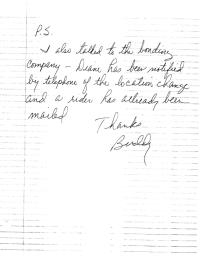 P.S.
I also talked to the bonding
company - Diane has been notified
by telephone of the location change
and a rider has already been
mailed
Thanks
Buddy